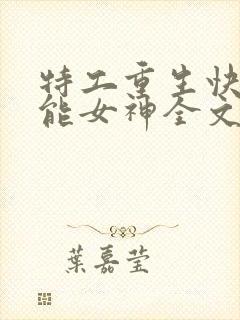 特工重生快
能女神全文
葉嘉莹